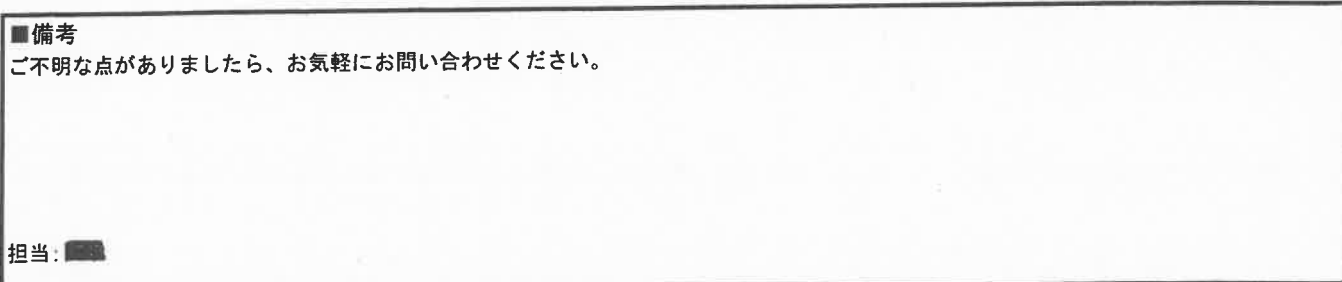 ■備考
ご不明な点がありましたら、お気軽にお問い合わせください。
担当: